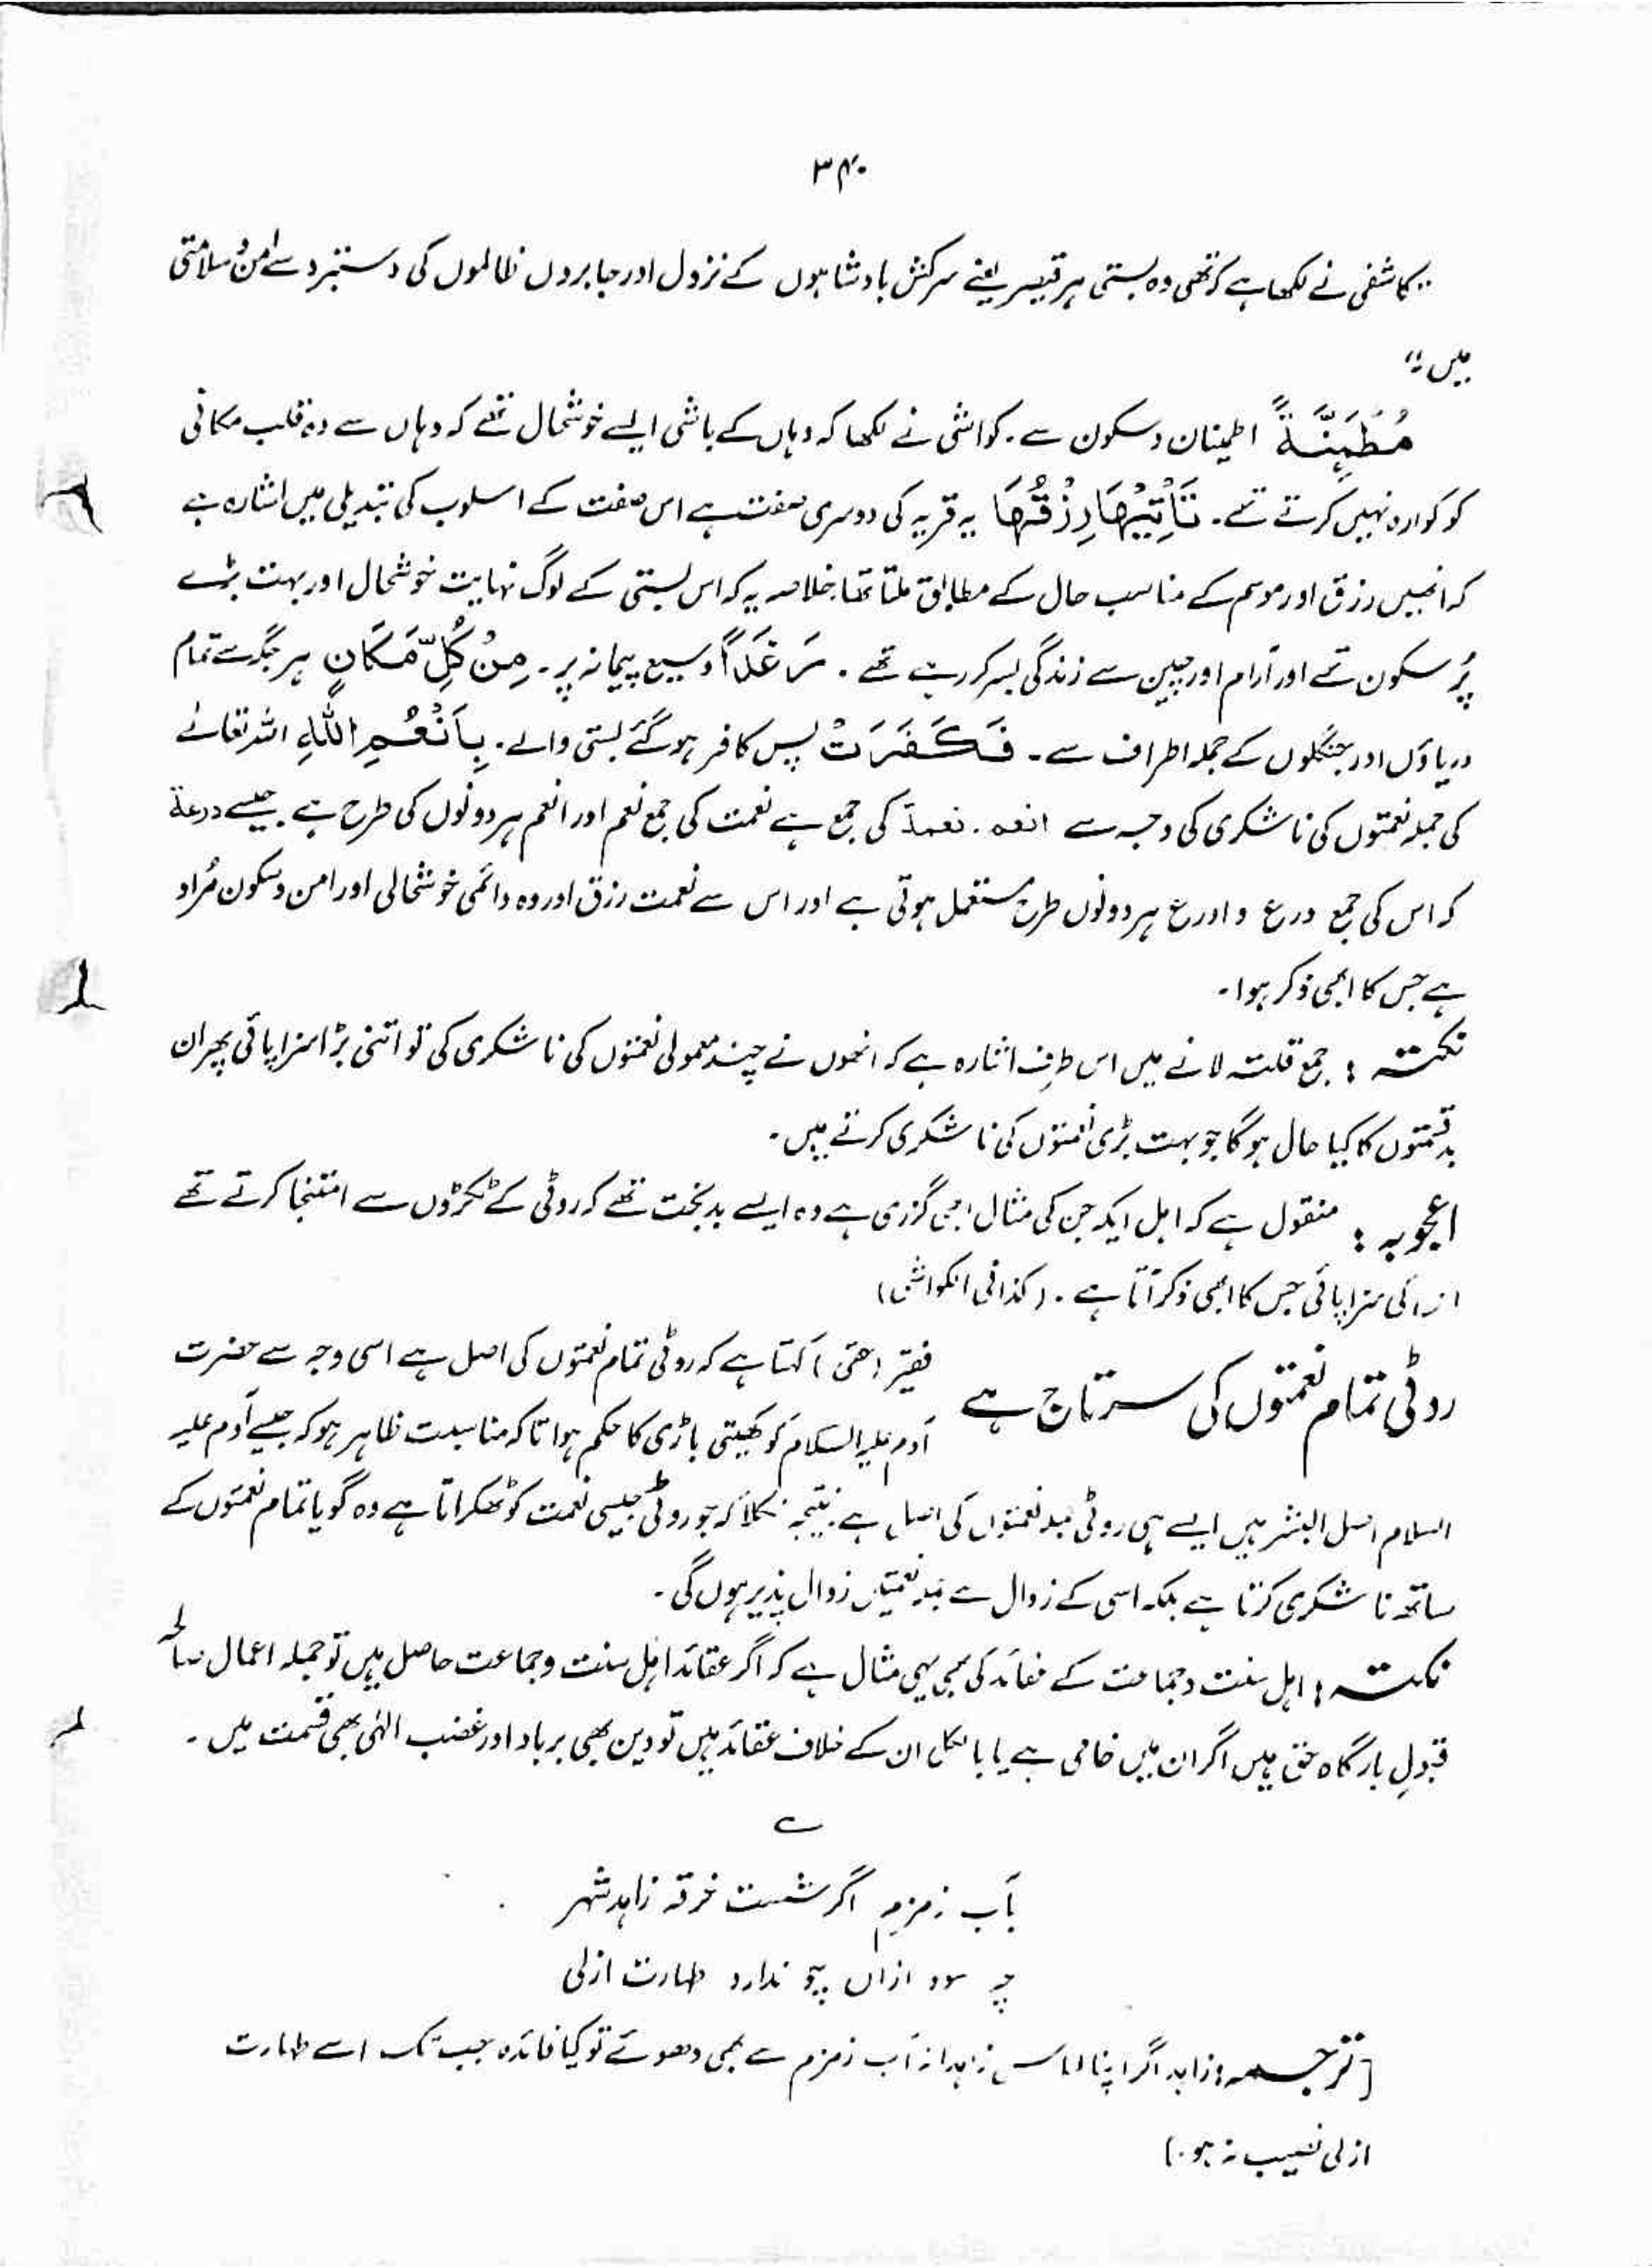 ۳۴۰
کاشفی نے لکھا ہے کہ تھی وہ بستی ہر قیصر یعنے سرکش بادشاہوں کے نزول اور جابروں ظالموں کی دستبرد سے امن و سلامتی
میں "
مُطْمَئِنَّةً اطمینان و سکون سے۔ کواشی نے لکھا کہ وہاں کے باشی ایسے خوشحال تھے کہ وہاں سے وہ قلب مکانی
کو گوارہ نہیں کرتے تھے۔ تَأْتِيْهَا رِزْقُهَا یہ قریہ کی دوسری صفت ہے اس صفت کے اسلوب کی تبدیلی میں اشارہ ہے
کہ انہیں رزق اور موسم کے مناسب حال کے مطابق ملتا تھا خلاصہ یہ کہ اس بستی کے لوگ نہایت خوشحال اور بہت بڑے
پُر سکون تھے اور آرام اور چین سے زندگی بسر کر رہے تھے۔ رَغَدًا وسیع پیمانہ پر۔ مِنْ كُلِّ مَكَانٍ ہر جگہ سے تمام
دریاؤں اور جنگلوں کے جملہ اطراف سے۔ فَكَفَرَتْ پس کافر ہو گئے بستی والے۔ بِأَنْعُمِ اللّٰهِ اللہ تعالٰے
کی جملہ نعمتوں کی ناشکری کی وجہ سے انعم۔ نعمة کی جمع ہے نعمت کی جمع نعم اور انعم ہر دونوں کی طرح ہے جیسے درعة
کہ اس کی جمع درع و ادرع ہر دونوں طرح مستعمل ہوتی ہے اور اس سے نعمت رزق اور وہ دائمی خوشحالی اور امن و سکون مُراد
ہے جس کا ابھی ذکر ہوا۔
نکتہ : جمع قلت لانے میں اس طرف اشارہ ہے کہ انھوں نے چند معمولی نعمتوں کی ناشکری کی تو اتنی بڑا سزا پائی پھر ان
بدقسمتوں کا کیا حال ہوگا جو بہت بڑی نعمتوں کی ناشکری کرتے ہیں۔
اعجوبہ : منقول ہے کہ اہل ایکہ جن کی مثال ابھی گزری ہے وہ ایسے بدبخت تھے کہ روٹی کے ٹکڑوں سے استنجا کرتے تھے
کی سزا پائی جس کا ابھی ذکر آتا ہے۔ (کذافی الکواشی)
روٹی تمام نعمتوں کی سرتاج ہے
فقیر (حقی) کہتا ہے کہ روٹی تمام نعمتوں کی اصل ہے اسی وجہ سے حضرت
آدم علیہ السلام کو کھیتی باڑی کا حکم ہوا تاکہ مناسبت ظاہر ہو کہ جیسے آدم علیہ
السلام اصل البشر ہیں ایسے ہی روٹی جملہ نعمتوں کی اصل ہے نتیجہ نکلا کہ جو روٹی جیسی نعمت کو ٹھکراتا ہے وہ گویا تمام نعمتوں کے
ساتھ ناشکری کرتا ہے بلکہ اسی کے زوال سے جملہ نعمتیں زوال پذیر ہوں گی۔
نکتہ : اہل سنت و جماعت کے عقائد کی بھی یہی مثال ہے کہ اگر عقائد اہل سنت و جماعت حاصل ہیں تو جملہ اعمال صالحہ
قبولِ بارگاہ حق ہیں اگر ان میں خامی ہے یا بالکل ان کے خلاف عقائد ہیں تو دین بھی برباد اور غضب الٰہی بھی قسمت میں۔
؎
بآب زمزم اگر شست خرقہ زاہد شہر
چہ سود ازاں چو ندارد طہارت ازلی
[ترجمہ : زاہد اگر اپنا لباس زاہدانہ آب زمزم سے بھی دھوئے تو کیا فائدہ جب تک اسے طہارت
ازلی نصیب نہ ہو۔)